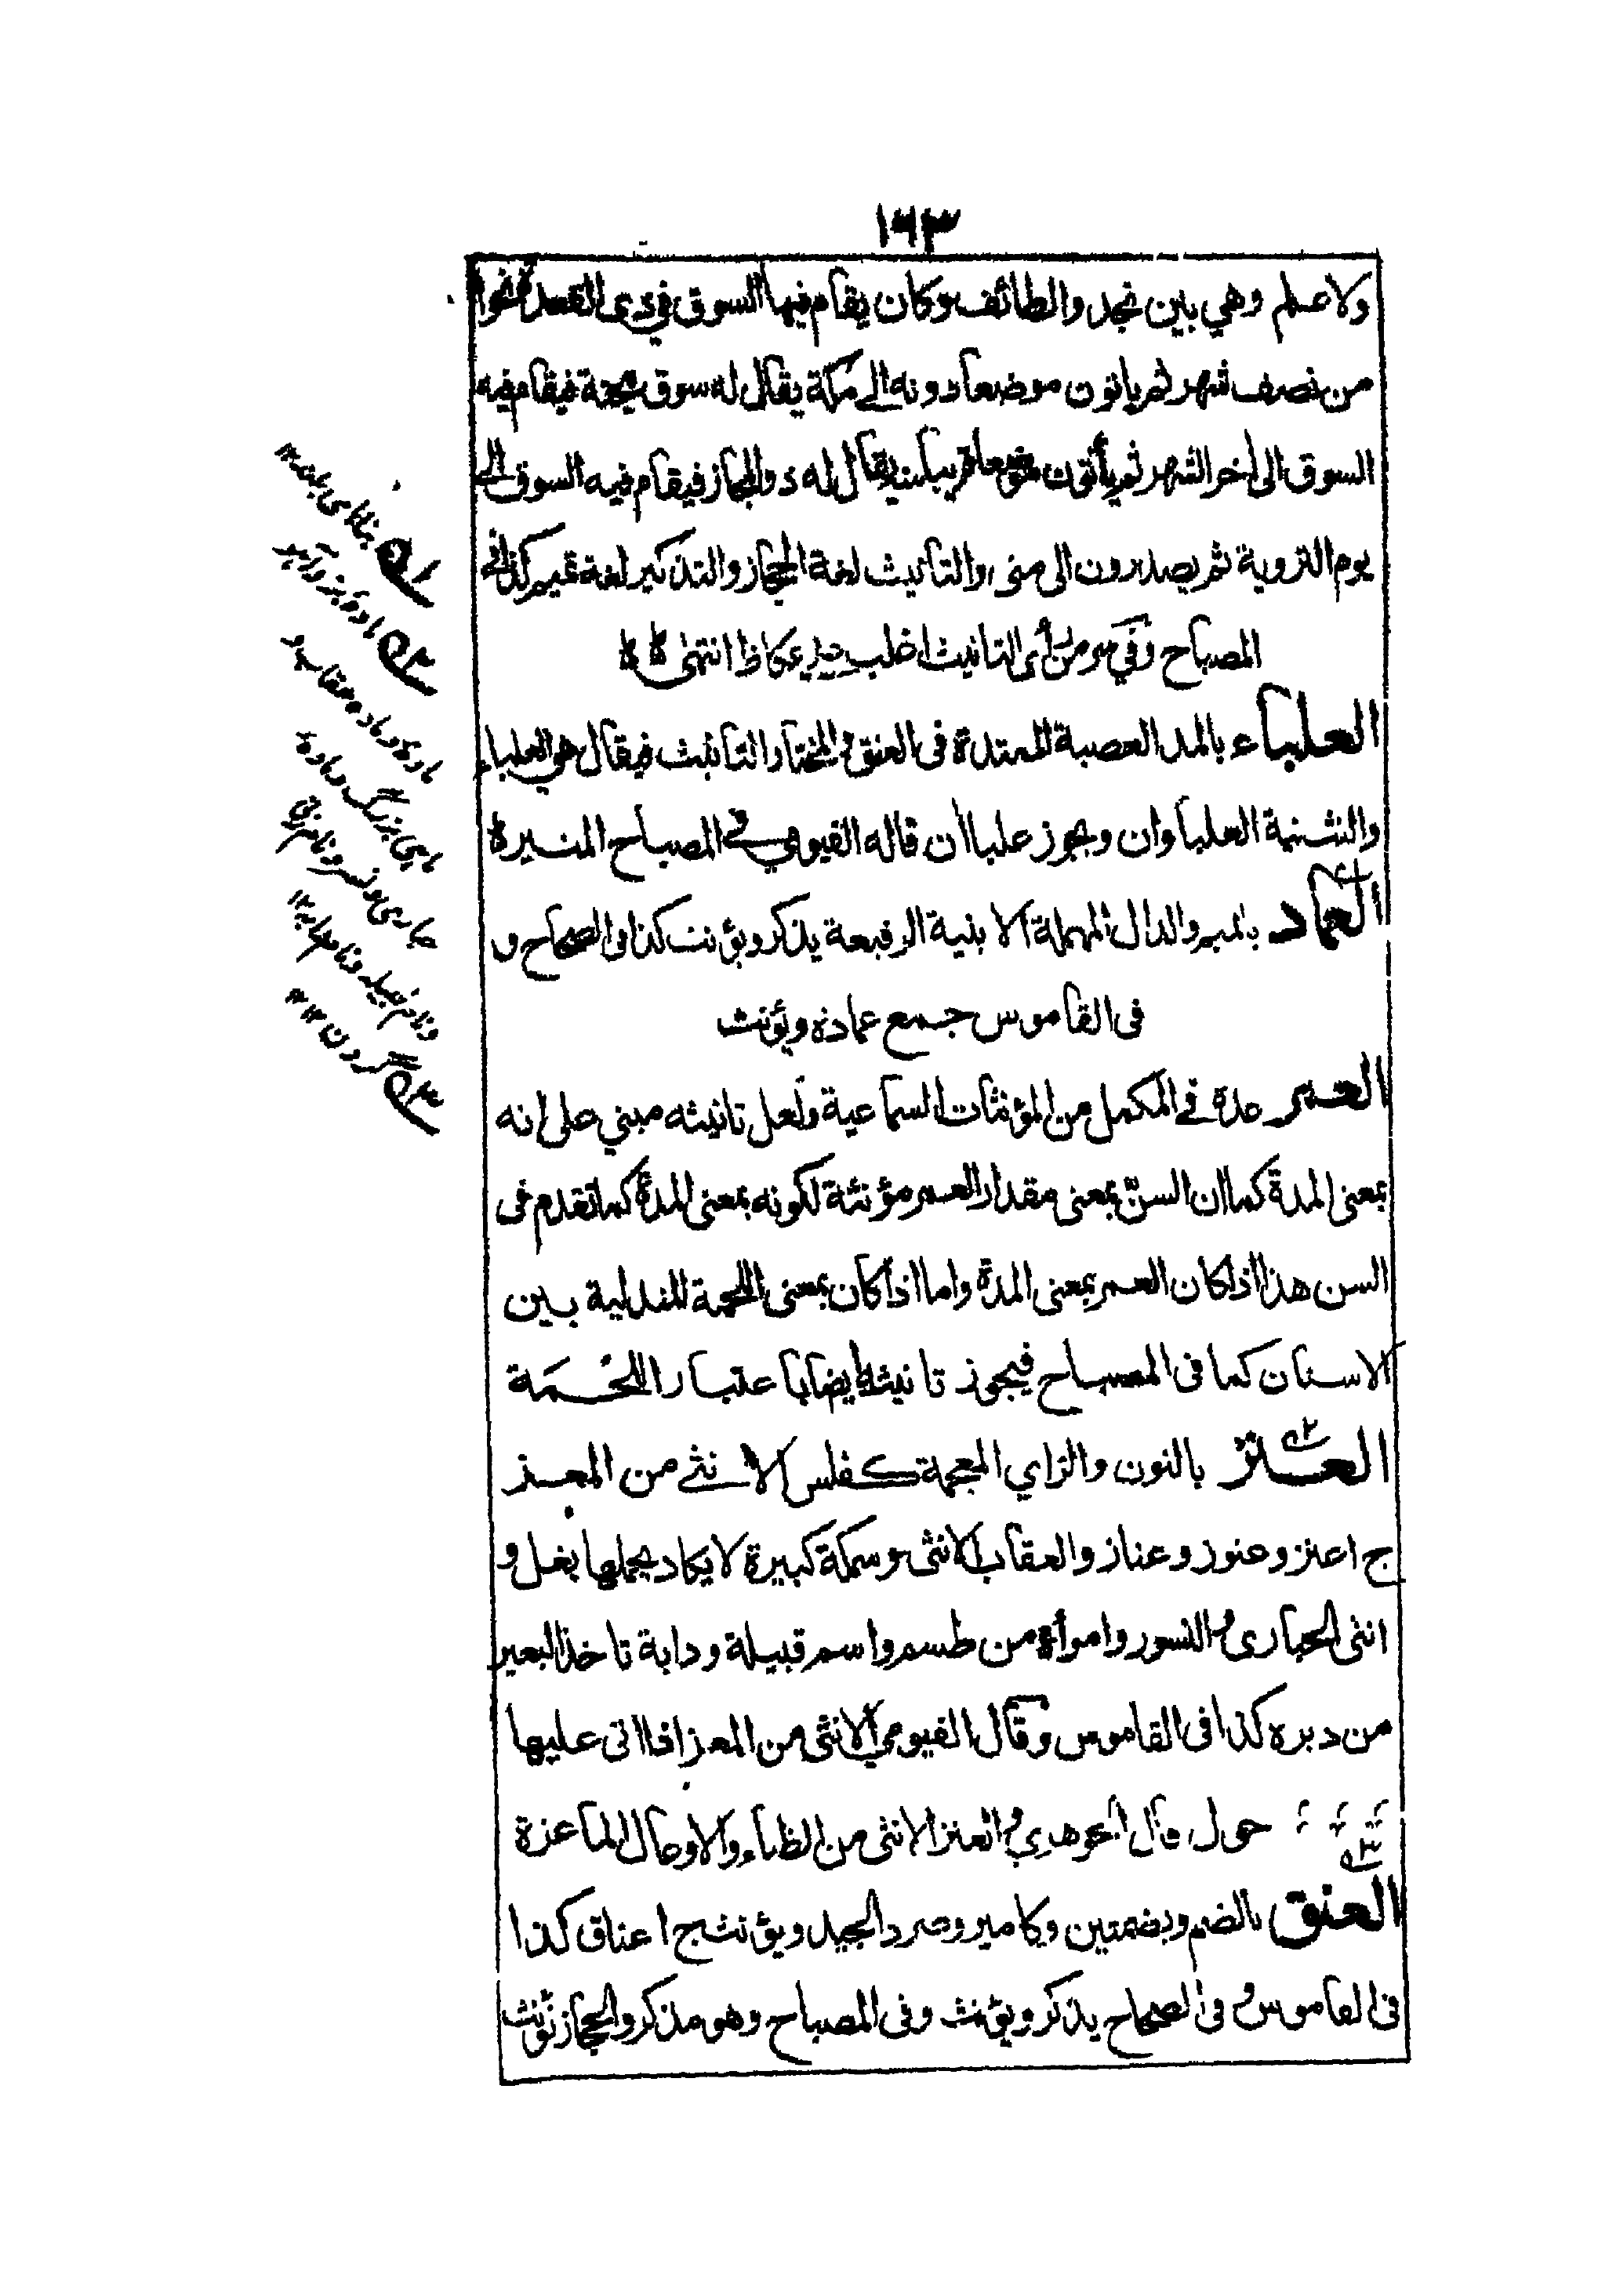 ١٦٣
ولا علم وهي بين نجد والطائف وكان يقام فيها السوق في ذي القعدة نحوا
من نصف شهر ثم يأتون موضعا دونه الى مكة يقال له سوق مجنة فيقام فيه
السوق الى اخر الشهر ثم يأتون موضعا قريبا منه يقال له ذو المجاز فيقام فيه السوق الى
يوم التروية ثم يصدرون الى منى والتانيث لغة الحجاز والتذكير لغة تميم كذا في
المصباح وفي التانيث اغلب عكاظ انتهى
العلباء بالمد العصبة الممتدة فى العنق والمختار التانيث فيقال هي العلباء
والتثنية العلباوان ويجوز علباان قاله الفيومي في المصباح المنير
العماد بالميم والدال المهملة الابنية الرفيعة يذكر ويؤنث كذا في الصحاح و
فى القاموس جمع عمادة ويؤنث
العمر عده في المكمل من المؤنثات السماعية ولعل تانيثه مبني على انه
بمعنى المدة كما ان السنّ بمعنى مقدار العمر مؤنثة لكونه بمعنى المدة كما تقدم فى
السن هذا اذا كان العمر بمعنى المدة واما اذا كان بمعنى اللحمة المتدلية بين
الاسنان كما فى المصباح فيجوز تانيثه ايضا باعتبار اللحْمَة
العنز بالنون والزاي المعجمة كفلس الانثى من المعز
ج اعنز وعنوز وعناز والعقاب الانثى وسمكة كبيرة لا يكاد يحملها بغل و
انثى الحبارى والنسور وامرأة من طسم واسم قبيلة ودابة تاخذ البعير
من دبره كذا فى القاموس وقال الفيومي الانثى من المعز اذا اتى عليها
حول قال الجوهري والعنز الانثى من الظباء والاوعال الماعزة
العنق بالضم وبضمتين وكامير وصرد الجيد ويؤنث ج اعناق كذا
فى القاموس وفى الصحاح يذكر ويؤنث وفى المصباح وهو مذكر والحجاز تؤنث
ماده بز وآهو
ماده وماده عقاب و
ماهى بزرگ وماده
ونام قبيله
گردن ١٢